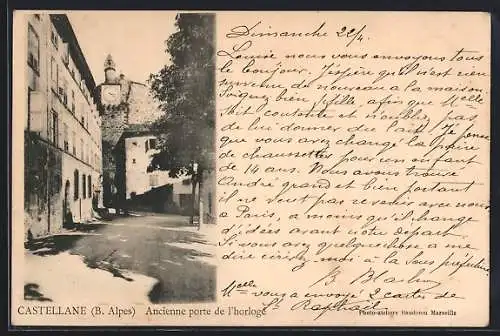 Dimanche 22/4.
Louise nous vous envoyons tous
le bonjour. J'espère qu'il n'est rien
survenu de nouveau à la maison.
Soignez bien fifille afin que Melle
soit contente et n'oubliez pas
de lui donner du lait. Je pense
que vous avez changé la paire
de chaussettes pour un enfant
de 14 ans. Nous avons trouvé
André grand et bien portant
il ne veut pas revenir avec nous
à Paris, à moins qu'il change
d'idées avant notre départ.
Si vous avez quelque chose à me
dire écrivez moi à la Sous préfecture
B.
Melle vous a envoyé 2 cartes de
St Raphaël
CASTELLANE (B. Alpes) Ancienne porte de l'horloge
Photo-ateliers Baudouin Marseille